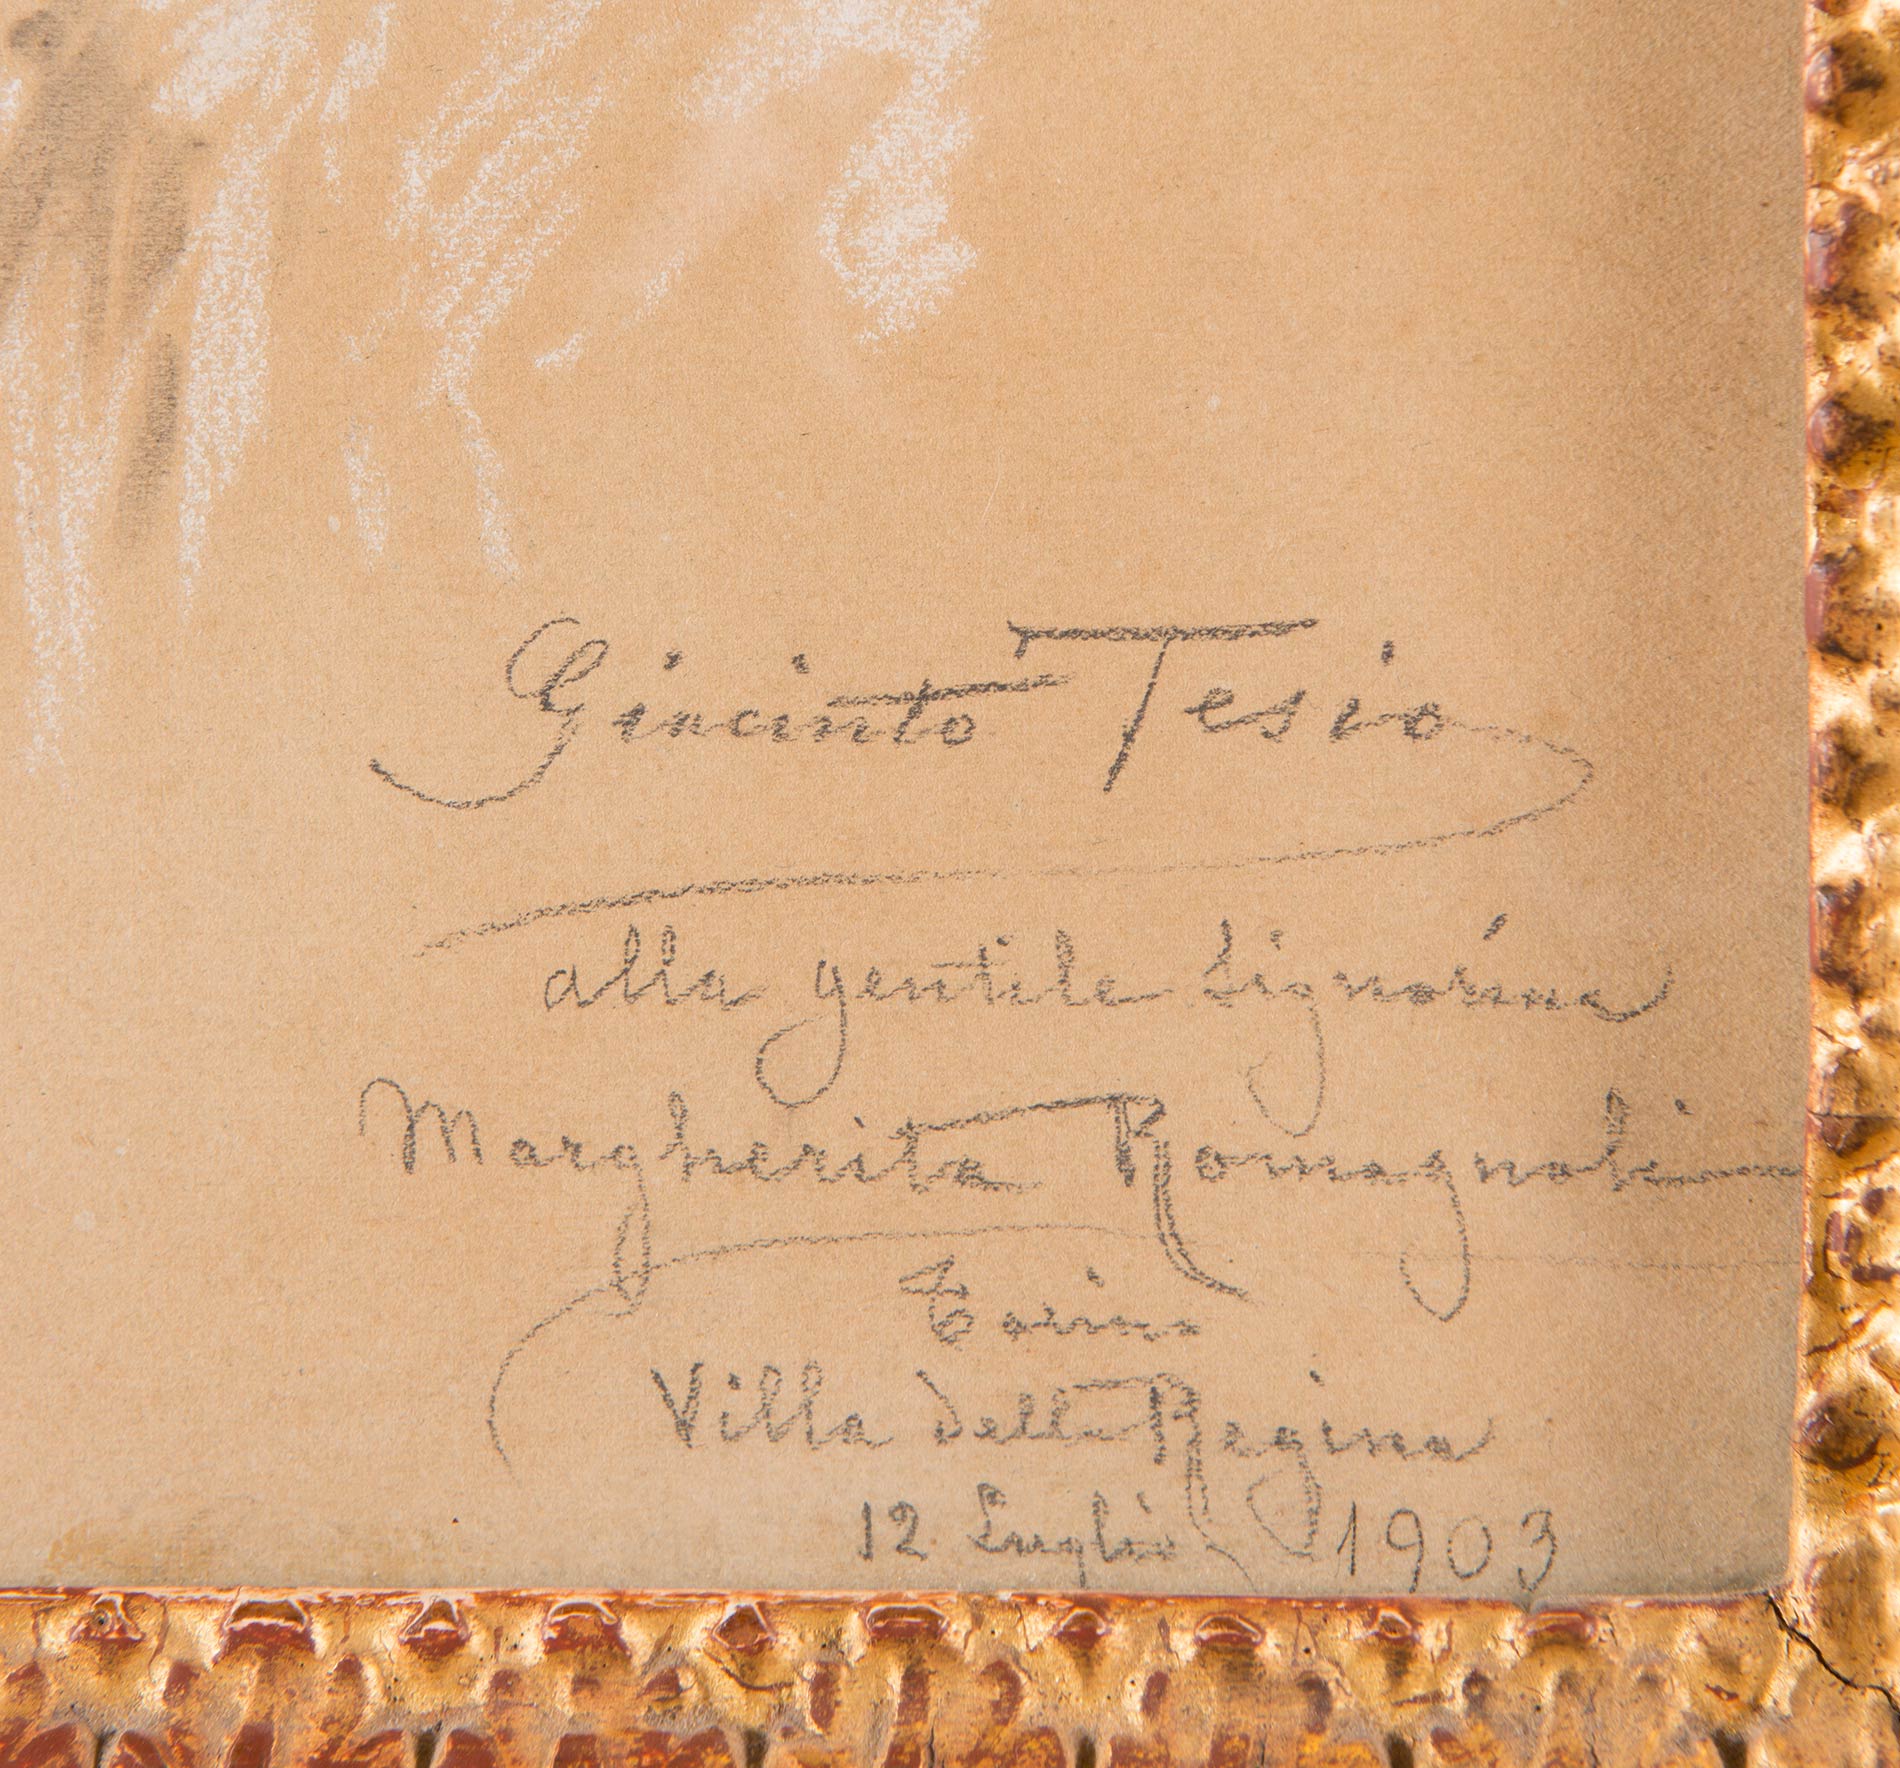 Giacinto Tesio
alla gentile Signorina
Margherita Romagnoli
Torino
Villa della Regina
12 Luglio 1903